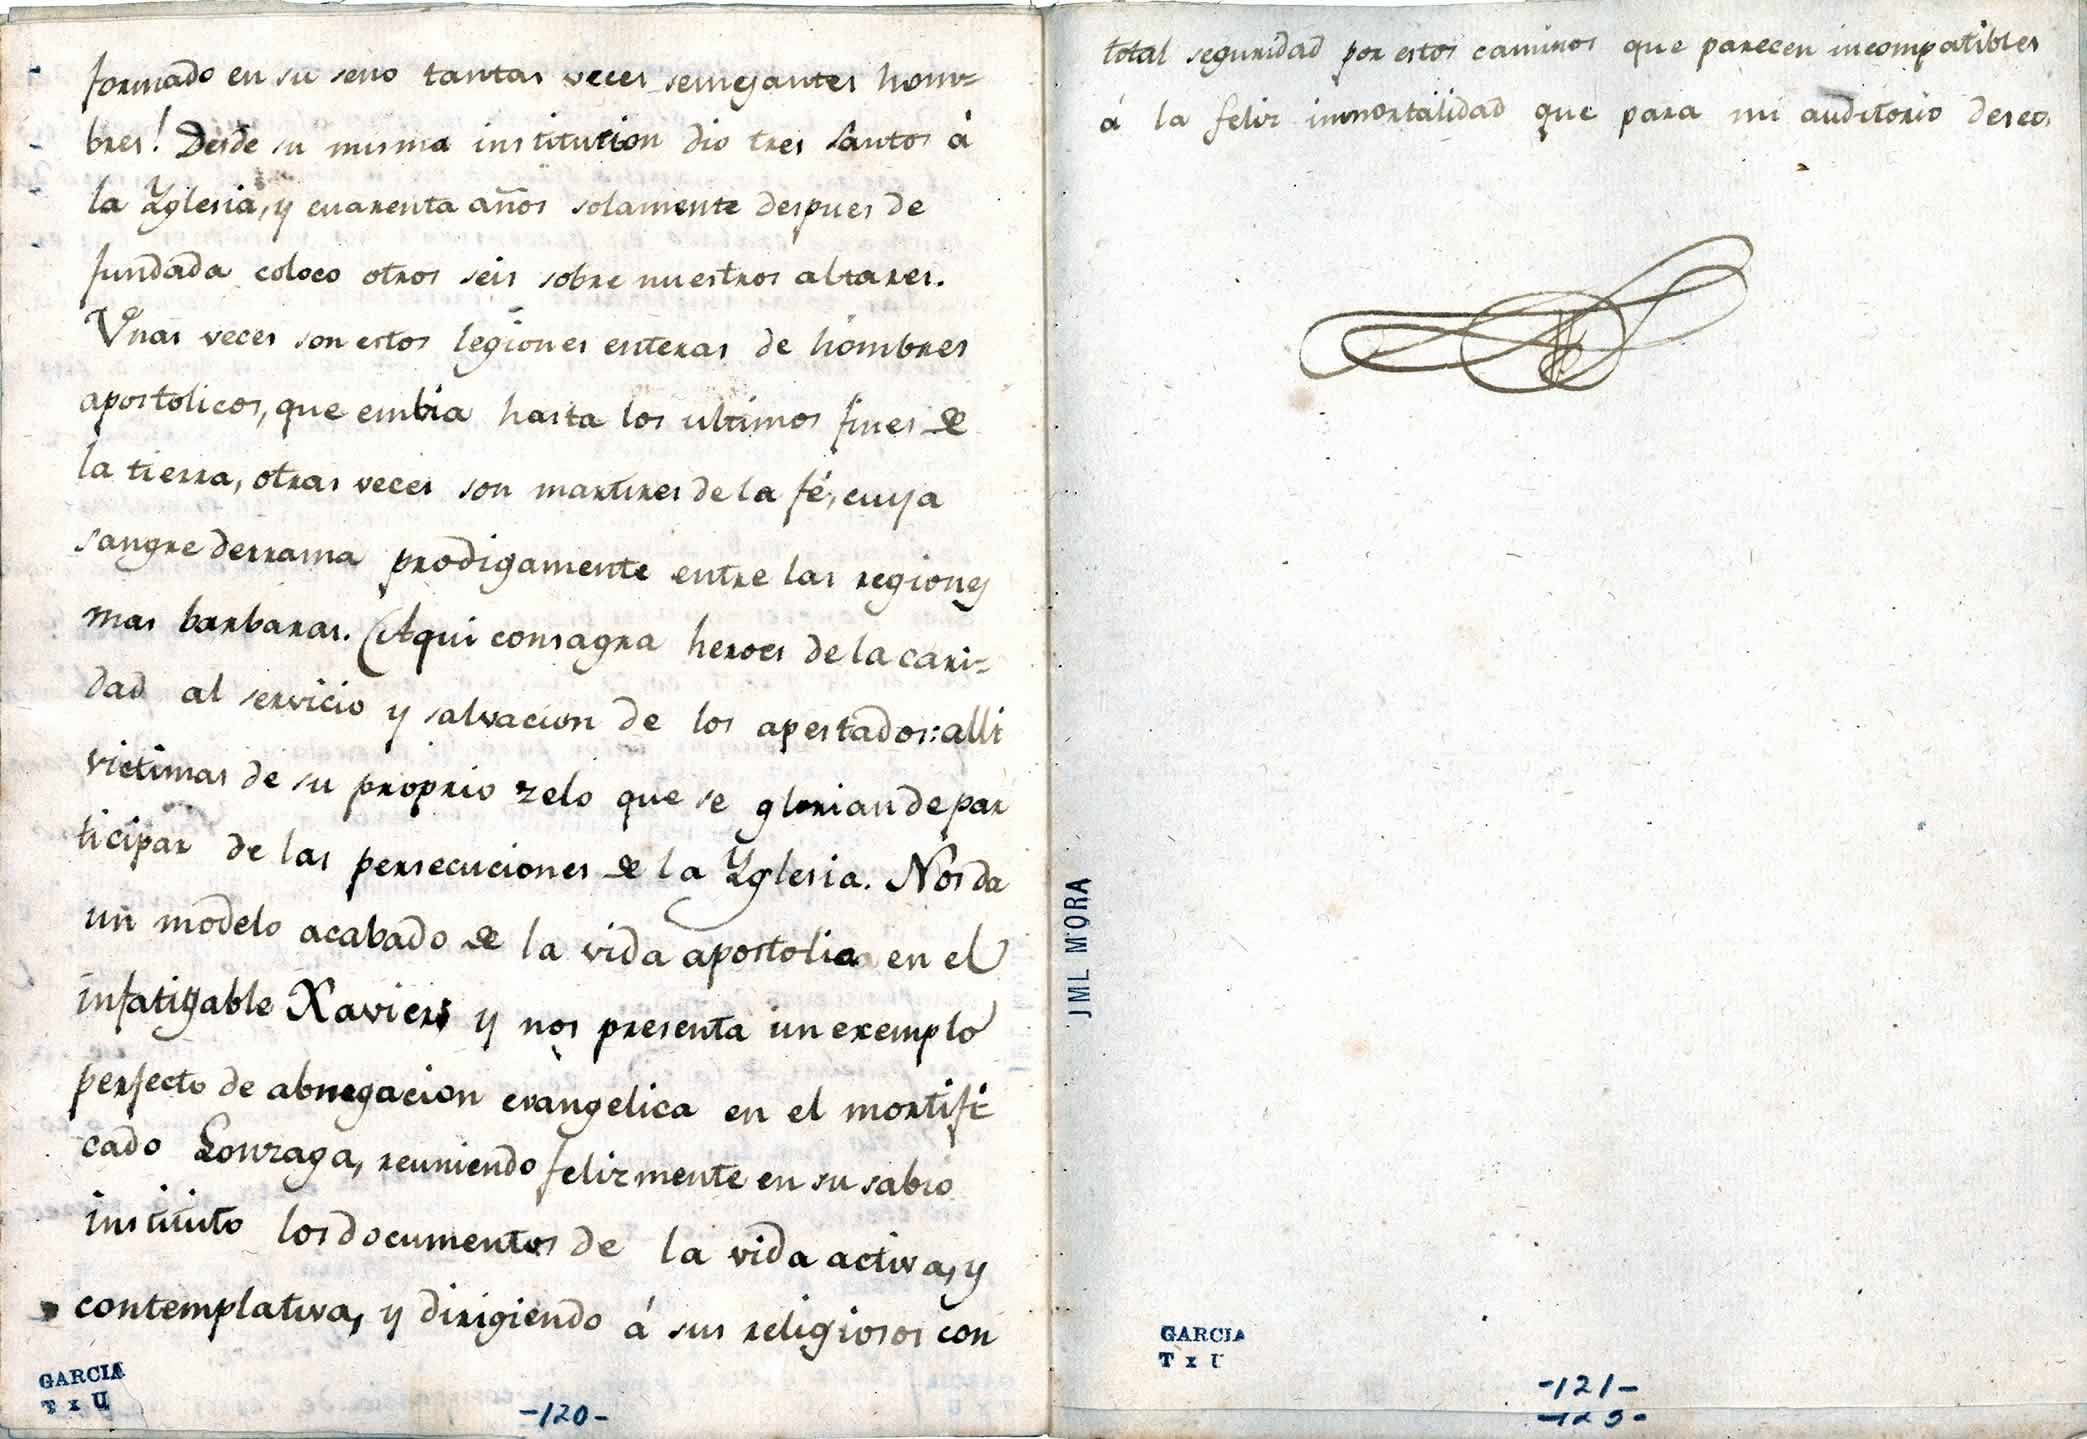 formado en su seno tantas veces semejantes hom=
bres! Desde su misma institucion dio tres Santos á
la Yglesia, y cuarenta años solamente despues de
fundada coloco otros seis sobre nuestros altares.
Unas veces son estos legiones enteras de hombres
apostolicos, que embia hasta los ultimos fines de
la tierra, otras veces son martires de la fé, cuya
sangre derrama prodigamente entre las regiones
mas barbaras. Aqui consagra heroes de la cari=
dad al servicio y salvacion de los apestados: alli
victimas de su proprio zelo que se glorian de par
ticipar de las persecuciones de la Yglesia. Nos da
un modelo acabado de la vida apostolica en el
infatigable Xavier y nos presenta un exemplo
perfecto de abnegacion evangelica en el mortifi=
cado Gonzaga, reuniendo felizmente en su sabio
instituto los documentos de la vida activa, y
contemplativa, y dirigiendo á sus religiosos con
GARCIA
T x U
-120-
total seguridad por estos caminos que parecen incompatibles
á la feliz inmortalidad que para mi auditorio deseo.
JML MORA
GARCIA
T x U
-121-